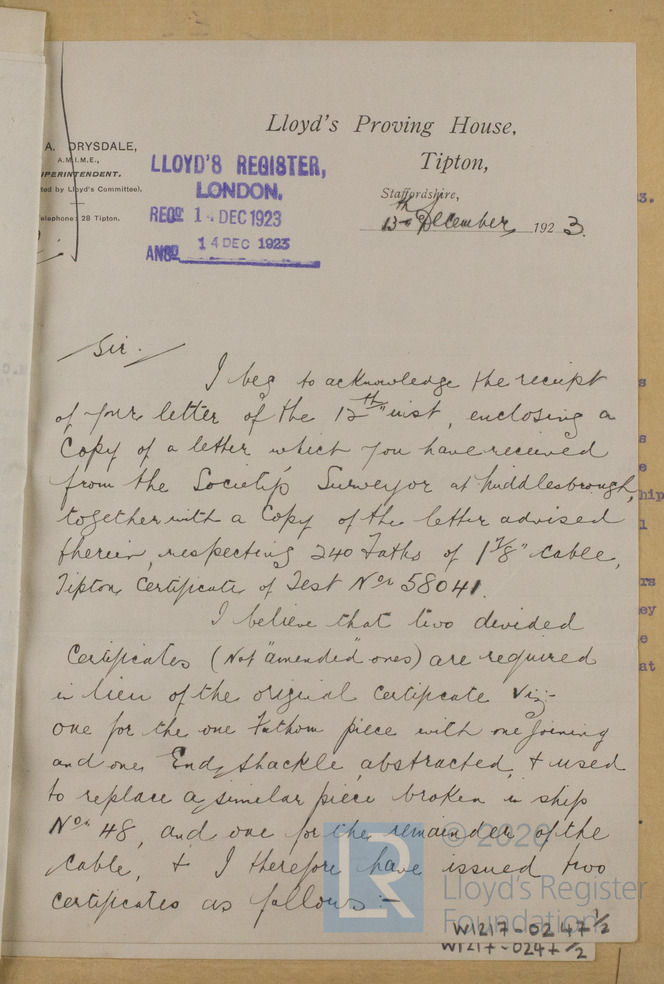 Lloyd's Proving House,
Tipton,
Staffordshire,
13th December, 1923.
A. DRYSDALE,
A.M.I.M.E.,
UPERINTENDENT.
ted by Lloyd's Committee).
elephone: 28 Tipton.
LLOYD'S REGISTER,
LONDON.
RECD 1 DEC 1923
ANSD 14 DEC 1923
Sir.
I beg to acknowledge the receipt
of your letter of the 12th inst, enclosing a
Copy of a letter which you have received
from the Society's Surveyor at Middlesbrough,
together with a Copy of the letter advised
therein, respecting 240 Faths of 1 7/8" Cable,
Tipton Certificate of Test No. 58041.
I believe that two divided
Certificates (not "amended" ones) are required
in lieu of the original Certificate Viz:-
one for the one Fathom piece with one Joining
and one End Shackle, abstracted, & used
to replace a similar piece broken in ship
No. 48, and one for the remainder of the
Cable, & I therefore have issued two
certificates as follows:-
© 2020
Lloyd's Register
Foundation
W1217-0247 1/2
W1217-0247 1/2
3.
s
s
e
hip
l
rs
ey
e
at